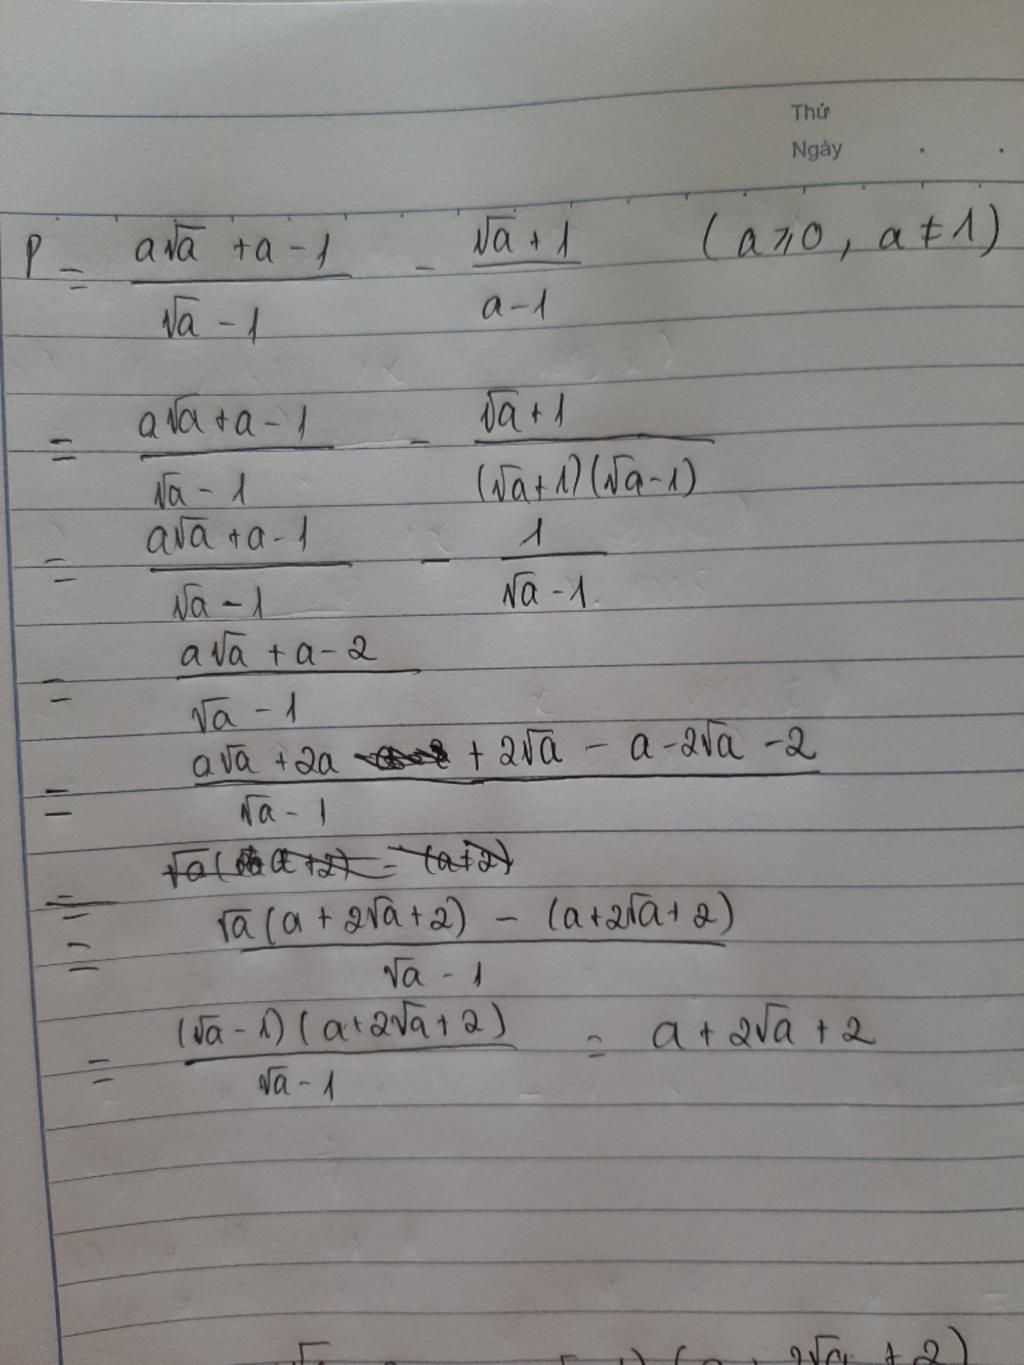 Thứ
Ngày
P = (a√a + a - 1)/(√a - 1) - (√a + 1)/(a - 1) (a ⩾ 0, a ≠ 1)
= (a√a + a - 1)/(√a - 1) - (√a + 1)/((√a + 1)(√a - 1))
= (a√a + a - 1)/(√a - 1) - 1/(√a - 1)
= (a√a + a - 2)/(√a - 1)
= (a√a + 2a + 2√a - a - 2√a - 2)/(√a - 1)
= (√a(a + 2√a + 2) - (a + 2√a + 2))/(√a - 1)
= ((√a - 1)(a + 2√a + 2))/(√a - 1) = a + 2√a + 2